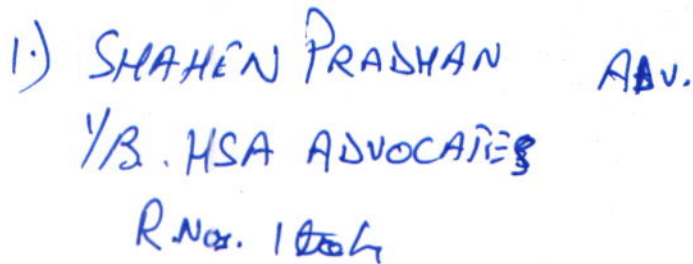 1.) SHAHEN PRADHAN ADV.
I/B. HSA ADVOCATES
R.Nos. 1